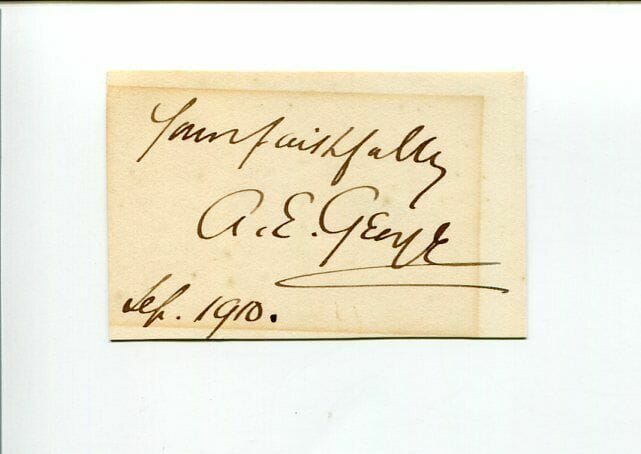 Yours faithfully
A. E. George
Sep. 1910.